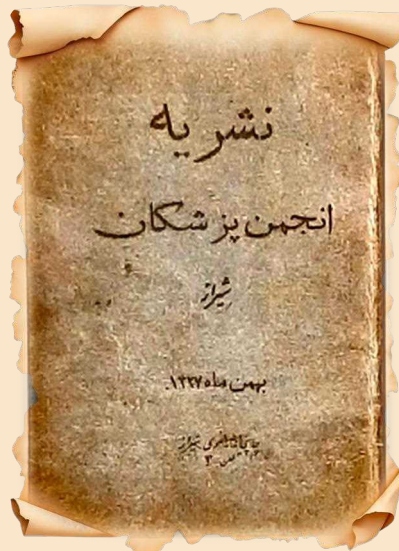 نشریه
انجمن پزشکان
شیراز
بهمن ماه ۱۳۲۷
شیراز
۳